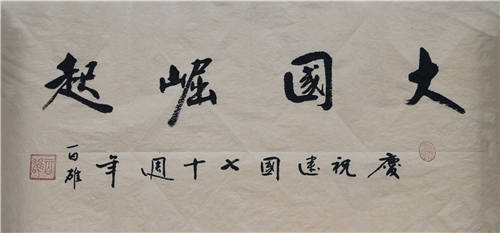 大國崛起
慶祝建國七十週年
百雄